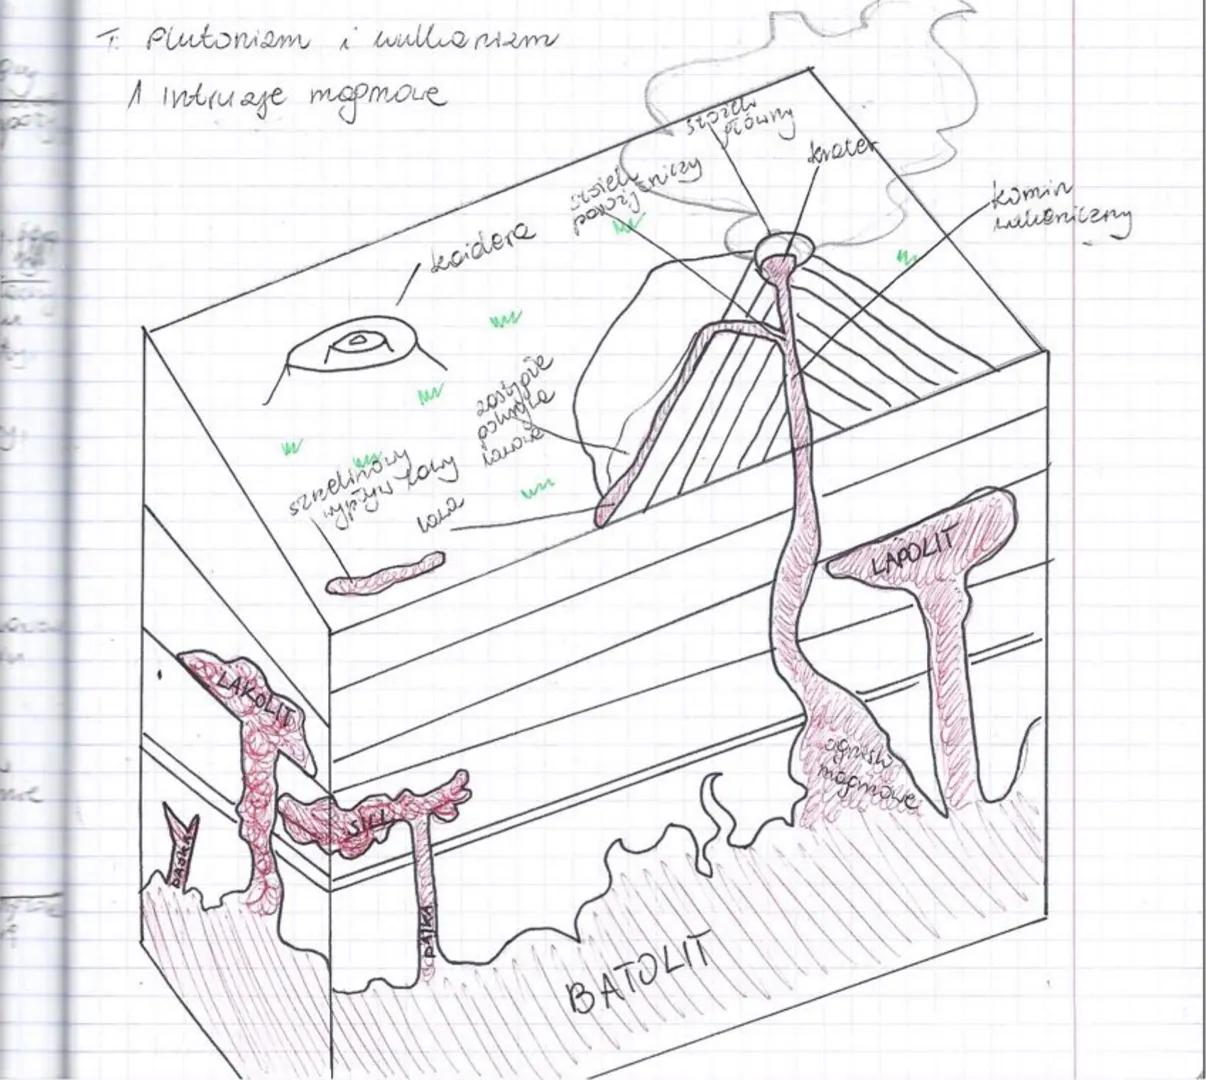 T: Plutonizm i wulkanizm
1 Intruzje magmowe
stożek
główny
krater
stożek
pasożytniczy
komin
wulkaniczny
kaldera
zastygła
pokrywa
lawowa
szczelinowy
wypływ lawy
lawa
LAPOLIT
LAKOLIT
ognisko
magmowe
SILL
DAJKA
DAJKA
BATOLIT